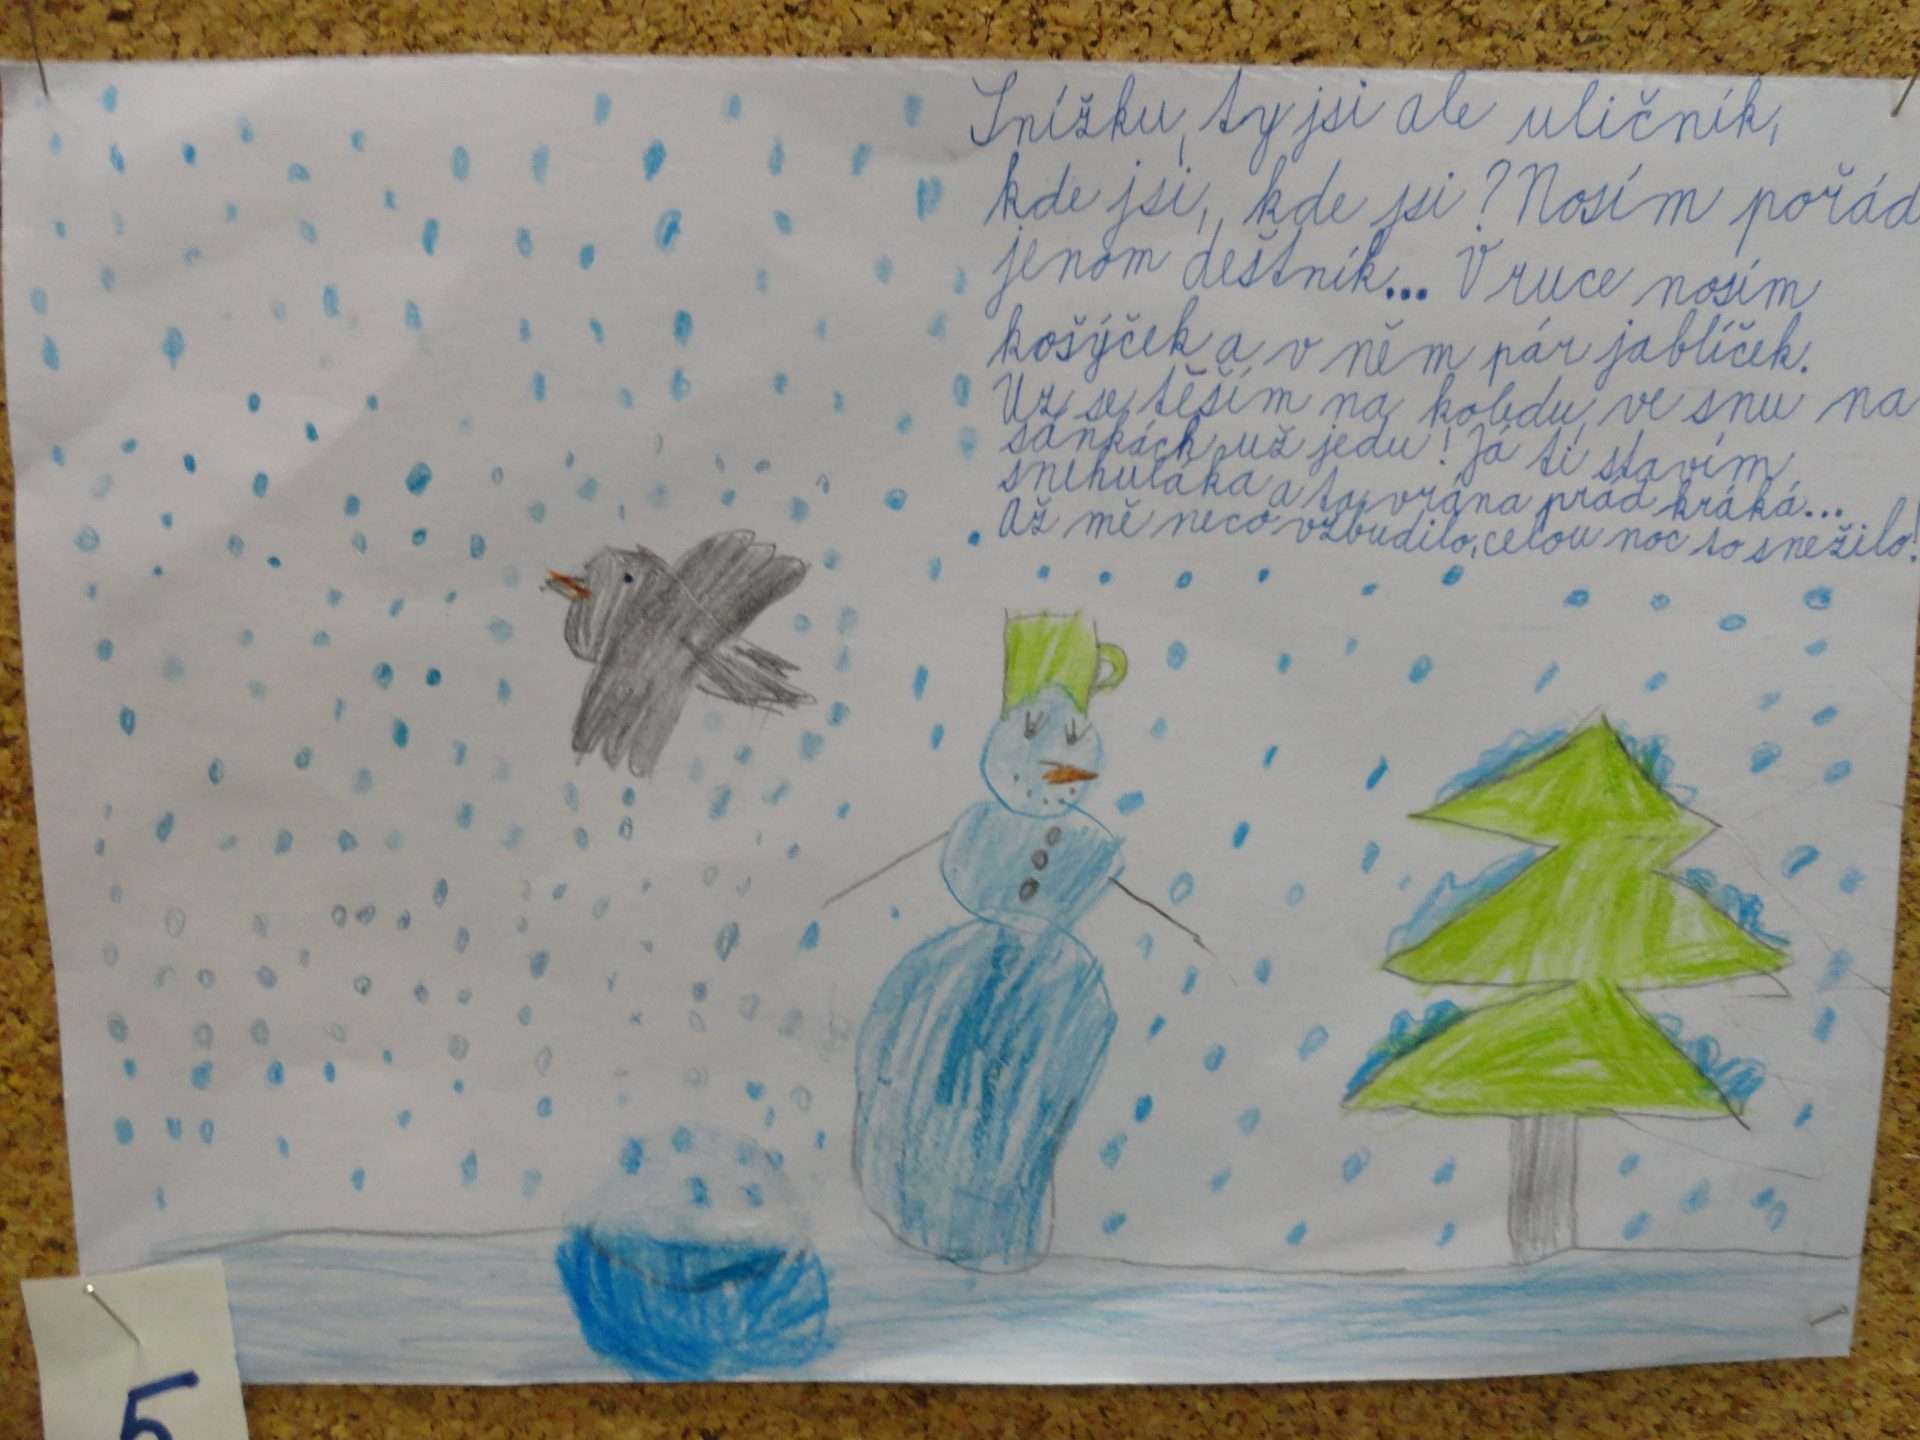 Snížku, ty jsi ale uličník,
kde jsi, kde jsi? Nosím pořád
jenom deštník... V ruce nosím
košýček a v něm pár jablíček.
Uz se těším na koledu, ve snu na
sánkách už jedu! Já ti stavím
snehuláka a ta vrána prád kráká...
Až mě neco vzbudilo, celou noc to snežilo!
5